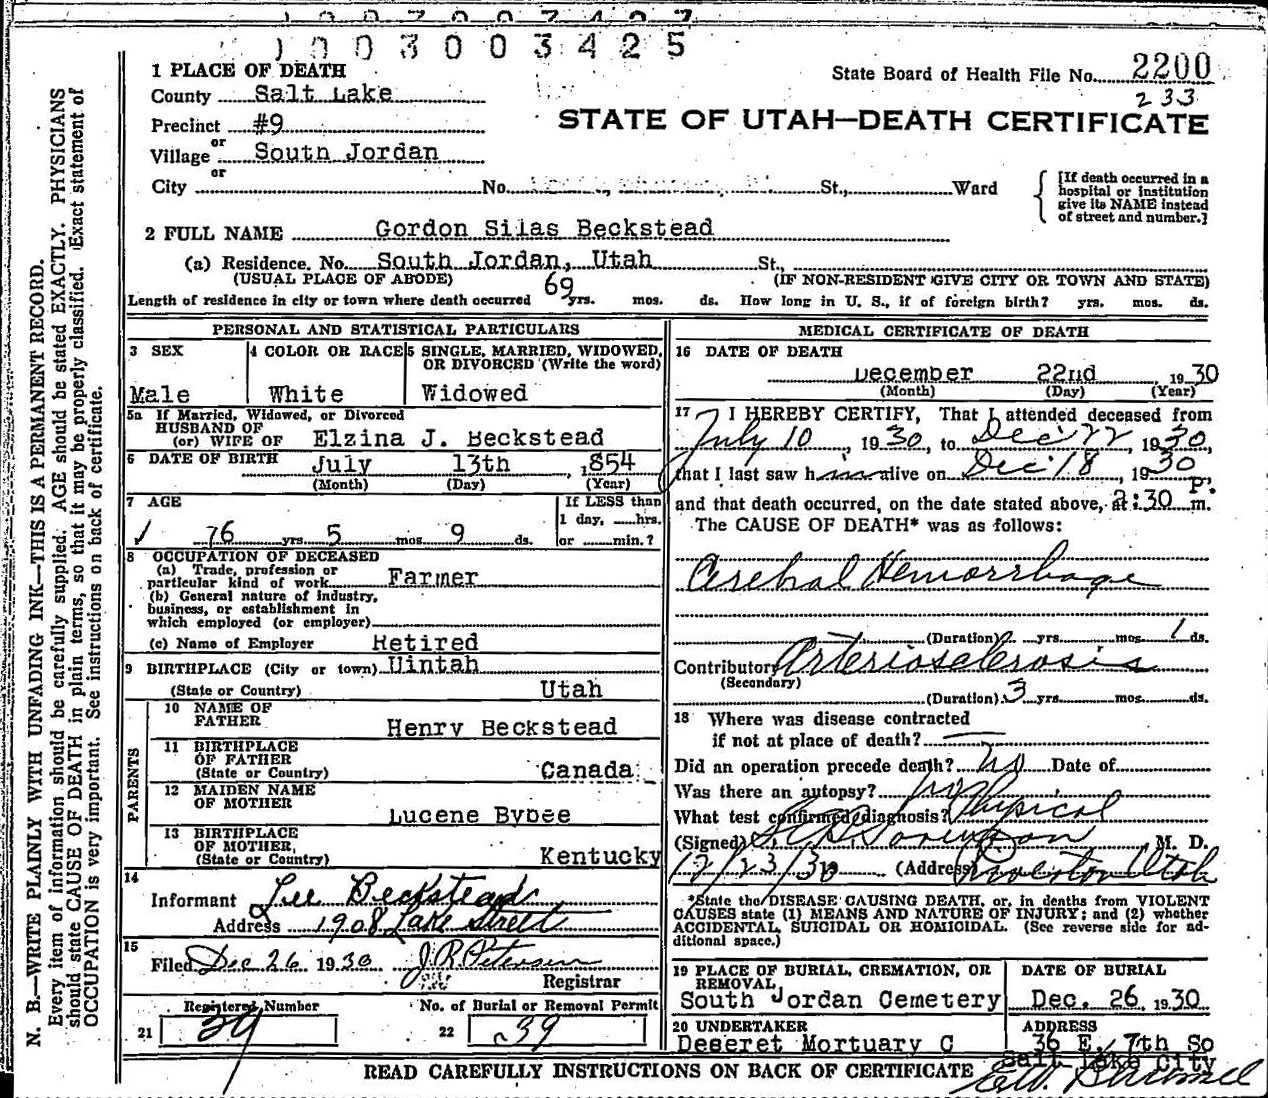 1003003425
1 PLACE OF DEATH
State Board of Health File No. 2200
County Salt Lake
233
Precinct #9
STATE OF UTAH—DEATH CERTIFICATE
or
Village South Jordan
or
City No. St., Ward
[If death occurred in a hospital or institution give its NAME instead of street and number.]
2 FULL NAME Gordon Silas Beckstead
(a) Residence. No. South Jordan, Utah St.,
(USUAL PLACE OF ABODE) (IF NON-RESIDENT GIVE CITY OR TOWN AND STATE)
Length of residence in city or town where death occurred 69 yrs. mos. ds. How long in U. S., if of foreign birth? yrs. mos. ds.
PERSONAL AND STATISTICAL PARTICULARS
3 SEX
Male
4 COLOR OR RACE
White
5 SINGLE, MARRIED, WIDOWED, OR DIVORCED (Write the word)
Widowed
5a If Married, Widowed, or Divorced
HUSBAND OF
(or) WIFE OF Elzina J. Beckstead
6 DATE OF BIRTH July 13th, 1854
(Month) (Day) (Year)
7 AGE
76 yrs 5 mos 9 ds.
If LESS than
1 day, hrs.
or min.?
8 OCCUPATION OF DECEASED
(a) Trade, profession or
particular kind of work Farmer
(b) General nature of industry,
business, or establishment in
which employed (or employer)
(c) Name of Employer Retired
9 BIRTHPLACE (City or town) Uintah
(State or Country) Utah
PARENTS
10 NAME OF
FATHER Henry Beckstead
11 BIRTHPLACE
OF FATHER
(State or Country) Canada
12 MAIDEN NAME
OF MOTHER Lucene Bybee
13 BIRTHPLACE
OF MOTHER,
(State or Country) Kentucky
14
Informant Lee Beckstead
Address 1908 Lake Street
15
Filed Dec 26 1930 J.R. Petersen
Registrar
Registered Number
21 39
No. of Burial or Removal Permit
22 39
MEDICAL CERTIFICATE OF DEATH
16 DATE OF DEATH
December 22nd, 1930
(Month) (Day) (Year)
17 I HEREBY CERTIFY, That I attended deceased from
July 10, 1930, to Dec 22, 1930,
that I last saw him alive on Dec 18, 1930
and that death occurred, on the date stated above, at 2:30 P. m.
The CAUSE OF DEATH* was as follows:
Cerebral Hemorrhage
(Duration) yrs. mos 1 ds.
Contributory Arteriosclerosis
(Secondary)
(Duration) 3 yrs. mos. ds.
18 Where was disease contracted
if not at place of death?
Did an operation precede death? No Date of
Was there an autopsy? no
What test confirmed diagnosis? Physical
(Signed) Sorenson, M. D.
12/23/30 19 (Address) Riverton Utah
*State the DISEASE CAUSING DEATH, or, in deaths from VIOLENT
CAUSES state (1) MEANS AND NATURE OF INJURY; and (2) whether
ACCIDENTAL, SUICIDAL OR HOMICIDAL. (See reverse side for ad-
ditional space.)
19 PLACE OF BURIAL, CREMATION, OR
REMOVAL
South Jordan Cemetery
DATE OF BURIAL
Dec. 26, 1930
20 UNDERTAKER
Deseret Mortuary C
ADDRESS
36 E. 7th So
Salt Lake City
READ CAREFULLY INSTRUCTIONS ON BACK OF CERTIFICATE
N. B.—WRITE PLAINLY WITH UNFADING INK—THIS IS A PERMANENT RECORD.
Every item of information should be carefully supplied. AGE should be stated EXACTLY. PHYSICIANS
should state CAUSE OF DEATH in plain terms, so that it may be properly classified. Exact statement of
OCCUPATION is very important. See instructions on back of certificate.